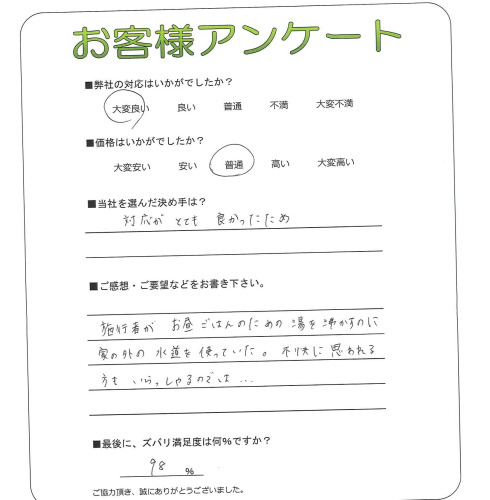 お客様アンケート
■弊社の対応はいかがでしたか？
大変良い 良い 普通 不満 大変不満
■価格はいかがでしたか？
大変安い 安い 普通 高い 大変高い
■当社を選んだ決め手は？
対応が とても 良かったため
■ご感想・ご要望などをお書き下さい。
施行者が お昼ごはんのための 湯を沸かすのに
家の外の 水道を 使っていた。 不快に 思われる
方も いらっしゃるのでは…
■最後に、ズバリ満足度は何％ですか？
98 ％
ご協力頂き、誠にありがとうございました。